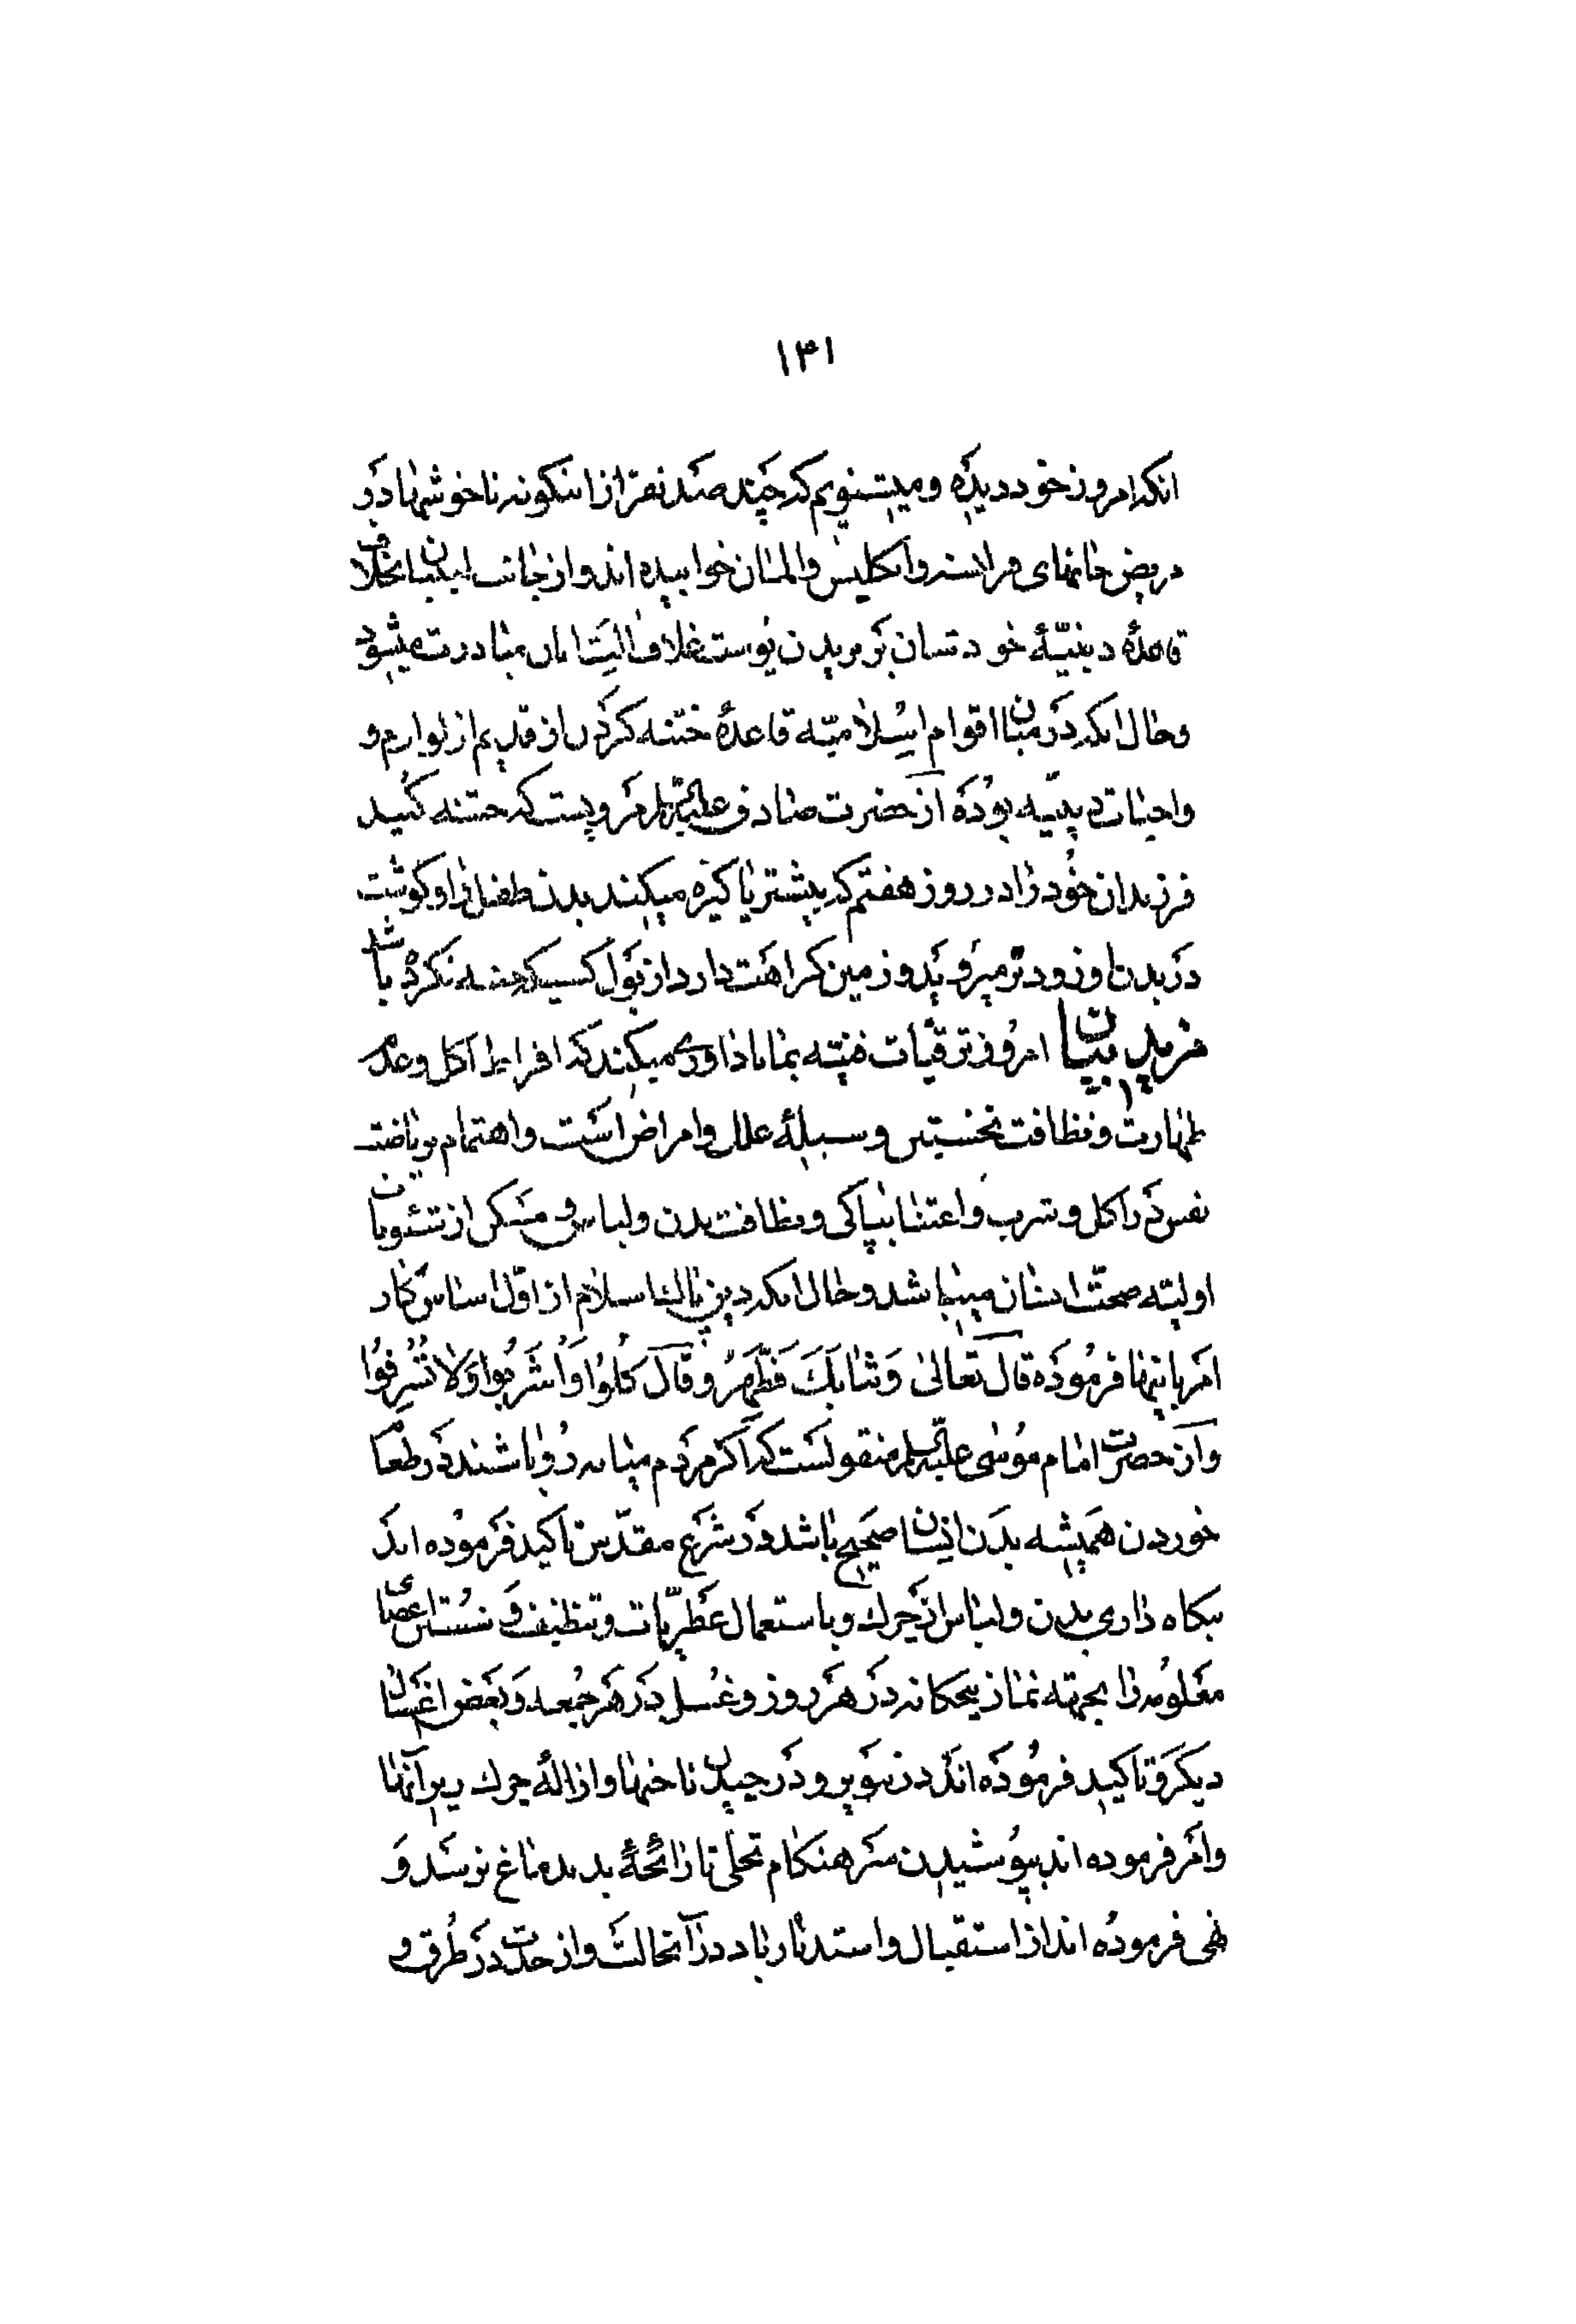 ۱۳۱
انکه امروز خود دیده و میشنویم که چند صد نفر از اینکونه ناخوشها در
مریض خانهای فرانسه و انکلیس و المان خوابیده اند و از جانب ایشان بخلاف
قاعدهٔ دینیّهٔ خودتسان بر بریدن پوست غلاف الیتانان مبادرت میشود
و حال انکه در میان اقوام اسلامیّه قاعدهٔ ختنه کردن از قدیم از لوازم و
واجبات دینیّه بوده از حضرت صادق علیه السلام مرویست که ختنه کنید
فرزندان خود را در روز هفتم که بیشتر پاکیزه میکند بدن طفل را و کوشت
در بدن او زودتر میروید و زمین کراهت دارد از بول کسیکه ختنه نکرده باشد
مزید بیان امروز ترقیات فنیّه بما یاداوری میکند که افراط اکل و عدم
طهارت و نظافت نخستین وسیلهٔ علل و امراض است و اهتمام بریاضت
نفس در اکل و شرب و اعتنا بپاکی و نظافت بدن و لباس و مسکن از تشئونات
اولیّه صحّت انسان میباشد و حال انکه دین پاك اسلام از اوّل اساس کار
امر باینها فرموده قال تعالی وَثیابَكَ فَطَهِّر وقال کُلُوا وَاشرَبُوا وَلا تُسرِفُوا
و از حضرت امام موسی علیه السلام منقولست که اکر مردم میانه رو باشند در طعام
خوردن همیشه بدن انسان صحیح باشد و در شرع مقدّس تاکید فرموده اند
بنکاه داری بدن و لباس از چرك و باستعمال عطریّات و تنظیف و شستن اعضای
معلومه را بجهته نماز پنجکانه در هر روز و غسل در هر جمعه و بعض اغسال
دیکر و تاکید فرموده اند در تنویر و در چیدن ناخنها و ازالهٔ چرك زیر آنها
و امر فرموده اند بپوشیدن سر هنکام تخلی تا رائحهٔ بد بدماغ نرسد و
نهی فرموده اند از استقبال و استدبار باد در آنحالت و از حدث در طرق و